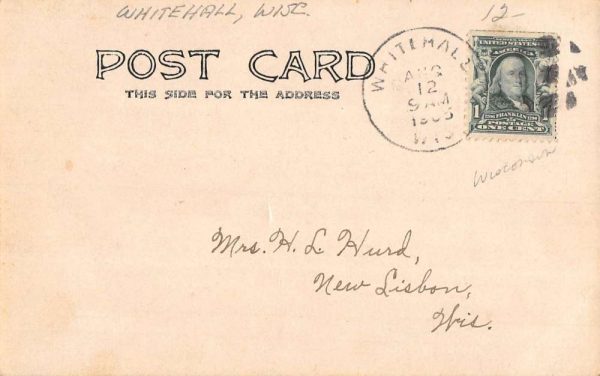 WHITEHALL, WISC.
12-
POST CARD
THIS SIDE FOR THE ADDRESS
WHITEHALL
AUG
12
9 AM
WIS
UNITED STATES OF
AMERICA
1
FRANKLIN
POSTAGE
ONE CENT
Wisconsin
Mrs. H. L. Hurd,
New Lisbon,
Wis.